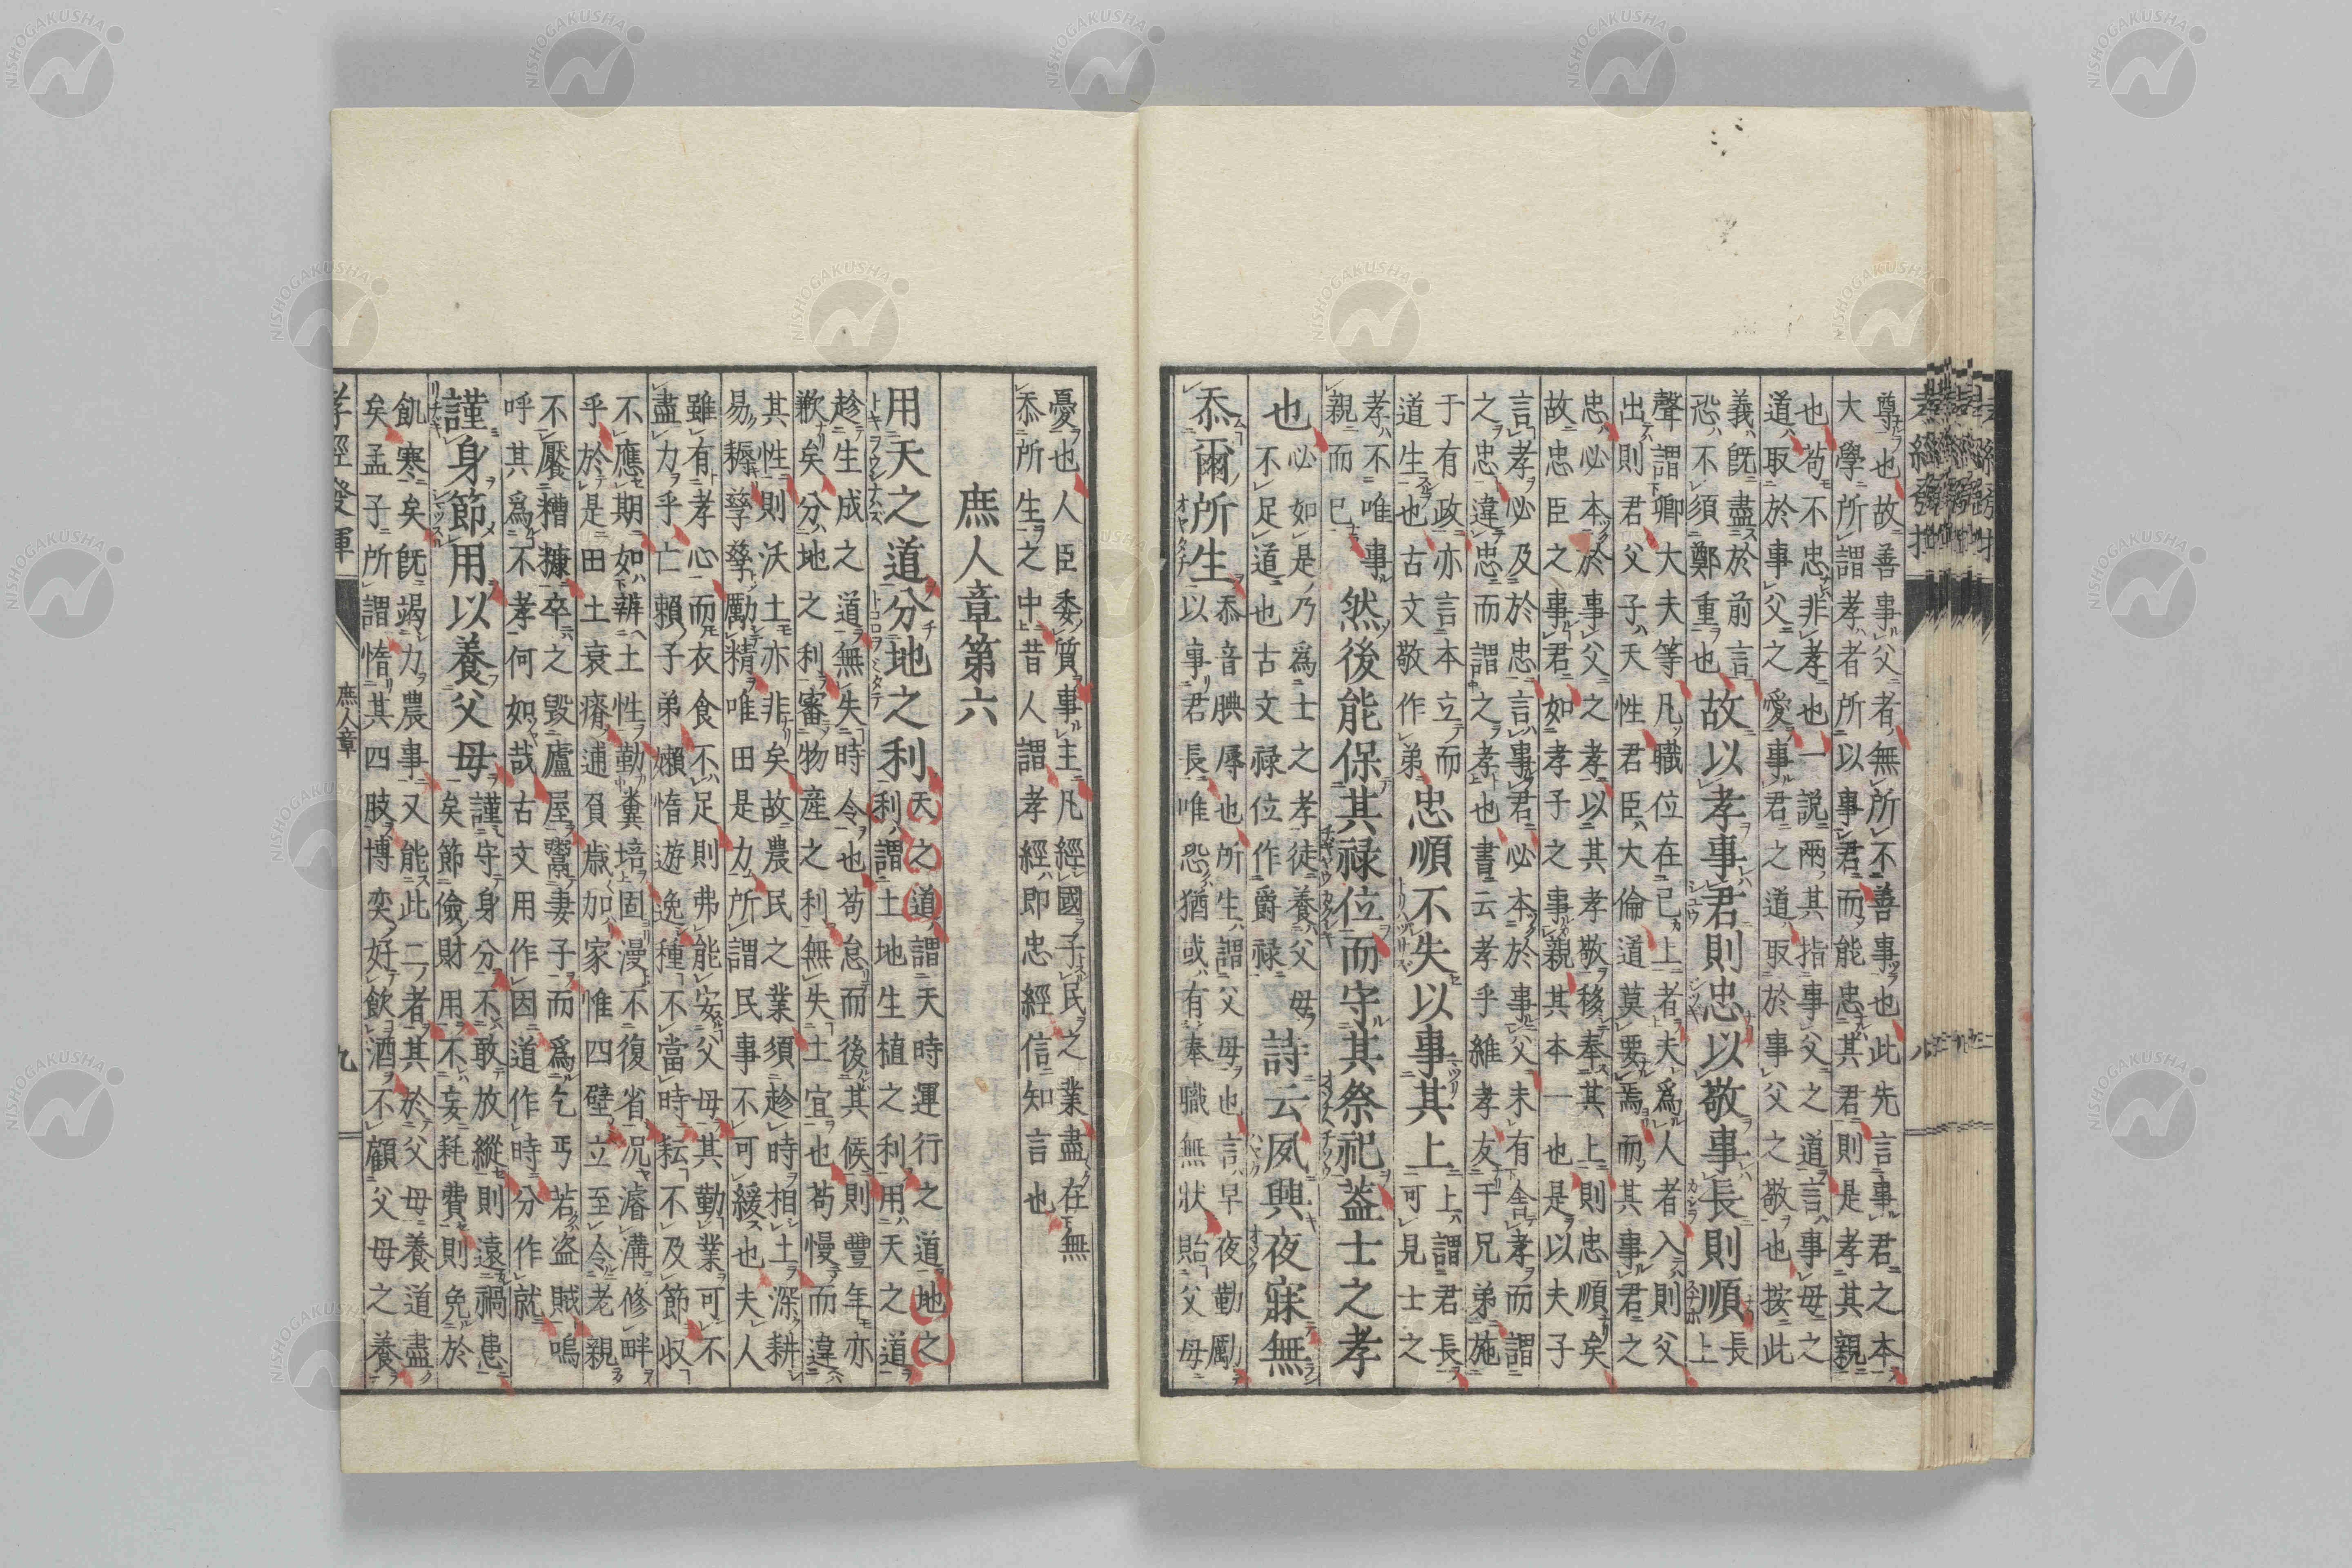 尊也故善事父者無所不善事也此先言事君之本
大學所謂孝者所以事君而能忠其君則是孝其親
也苟不忠非孝也一說兩其指事父之道言事母之
道取於事父之愛事君之道取於事父之敬也按此
義既盡於前言
恐不須鄭重也
故以孝事君則忠以敬事長則順
長
上
聲謂卿大夫等凡職位在己上者夫爲人者入則父
出則君父子天性君臣大倫道莫要焉而其事君之
忠必本於事父之孝以其孝敬移奉其上則忠順矣
故忠臣之事君如孝子之事親其本一也是以夫子
言孝必及於忠言事君必本於事父未有舍孝而謂
之忠違忠而謂之孝也書云孝乎維孝友于兄弟施
于有政亦言本立而
道生也古文敬作弟
忠順不失以事其上
上謂君長
可見士之
孝不唯事
親而已
然後能保其祿位而守其祭祀蓋士之孝
也
必如是乃爲士之孝徒養父母
不足道也古文祿位作爵祿
詩云夙興夜寐無
忝爾所生
忝音腆辱也所生謂父母也言早夜勤勵
以事君長唯恐猶或有奉職無狀貽父母
憂也人臣委質事主凡經國子民之業盡在無
忝所生之中昔人謂孝經即忠經信知言也
庶人章第六
用天之道分地之利
天之道謂天時運行之道地之
利謂土地生植之利用天之道
趁生成之道無失時令也苟怠而後其候則豐年亦
歉矣分地之利審物產之利無失土宜也苟慢而違
其性則沃土亦非矣故農民之業須趁時相土深耕
易耨孳孳勵精唯田是力所謂民事不可緩也夫人
雖有孝心而衣食不足則弗能安父母其勤業可不
盡力乎亡賴子弟嬾惰遊逸種不當時耘不及節收
不應期如辨土性勤糞培固漫不復省況濬溝修畔
乎於是田土衰瘠逋負歲加家惟四壁立至令老親
不饜糟糠卒之毀廬屋鬻妻子而爲乞丐若盜賊嗚
呼其爲不孝何如哉古文用作因道作時分作就
謹身節用以養父母
謹守身分不敢放縱則遠禍患
矣節儉財用不妄耗費則免於
飢寒矣既竭力農事又能此二者其於父母養道盡
矣孟子所謂惰其四肢博奕好飲酒不顧父母之養
孝經發揮
庶人章
九